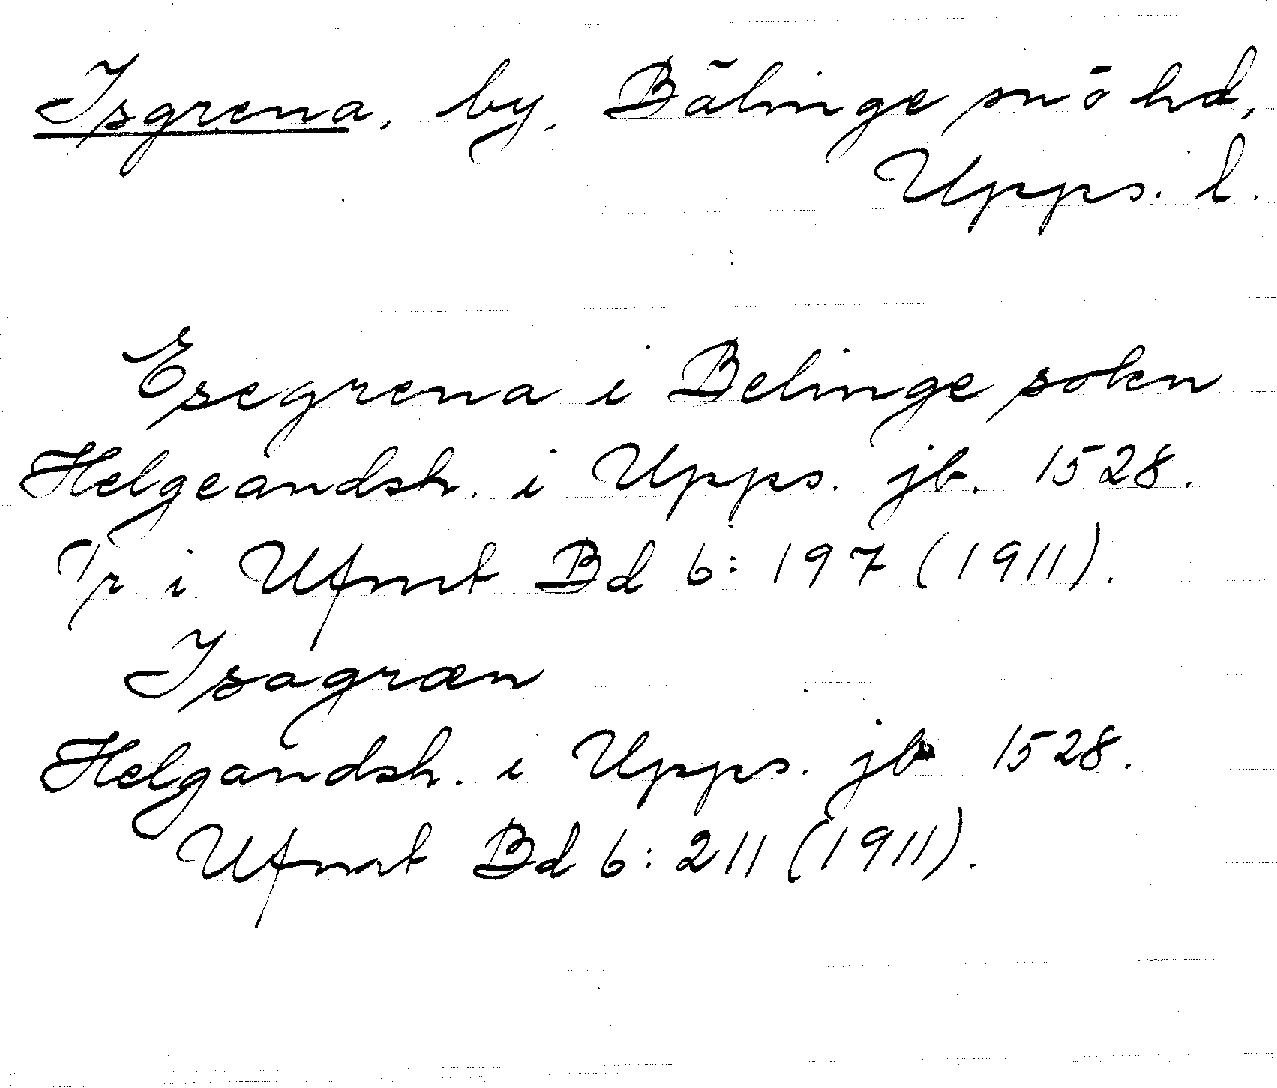 Isgrena, by, Bälinge sn o hd,
Upps. l.
Esegrena i Belinge sokn
Helgeandsh. i Upps. jb. 1528.
Tr i Ufmt Bd 6: 197 (1911).
Isagræn
Helgandsh. i Upps. jb 1528.
Ufmt Bd 6: 211 (1911).